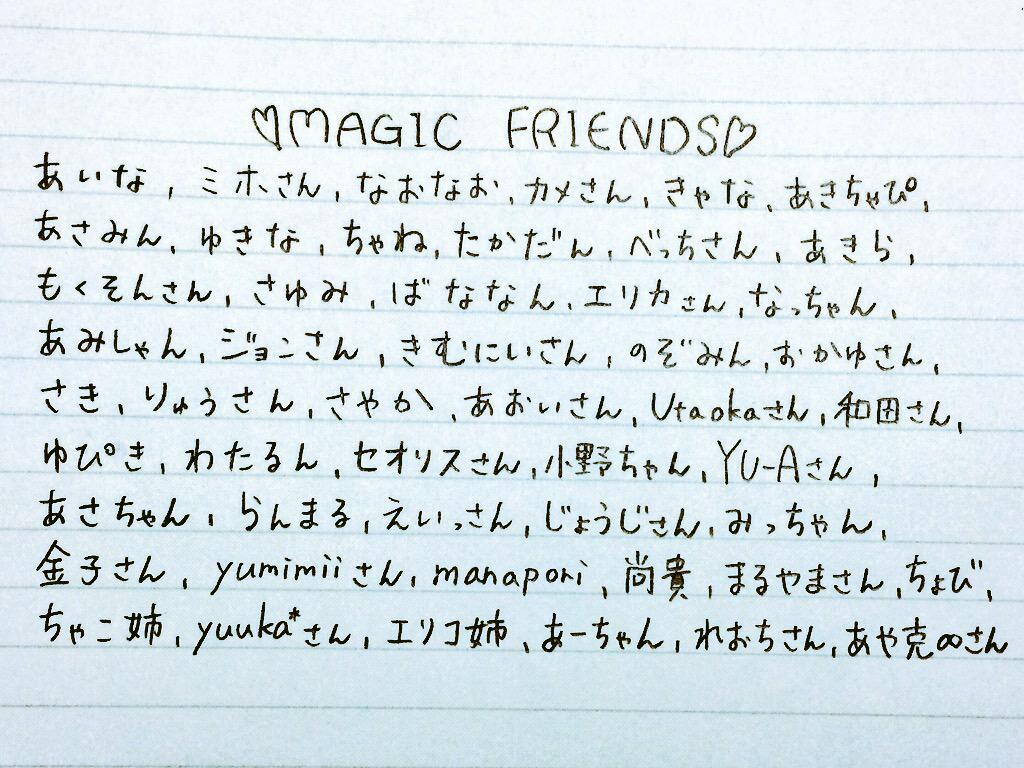 ♡MAGIC FRIENDS♡
あいな, ミホさん, なおなお, カメさん, きゃな, あきちゃぴ,
あさみん, ゆきな, ちゃね, たかだん, べっちさん, あきら,
もくそんさん, さゆみ, ばななん, エリカさん, なっちゃん,
あみしゃん, ジョンさん, きむにいさん, のぞみん, おかゆさん,
さき, りゅうさん, さやか, あおいさん, Utaokaさん, 和田さん,
ゆぴき, わたるん, セオリスさん, 小野ちゃん, YU-Aさん,
あさちゃん, らんまる, えいっさん, じょうじさん, みっちゃん,
金子さん, yumimiiさん, manapori, 尚貴, まるやまさん, ちょび,
ちゃこ姉, yuuka*さん, エリコ姉, あーちゃん, れおちさん, あや克∞さん